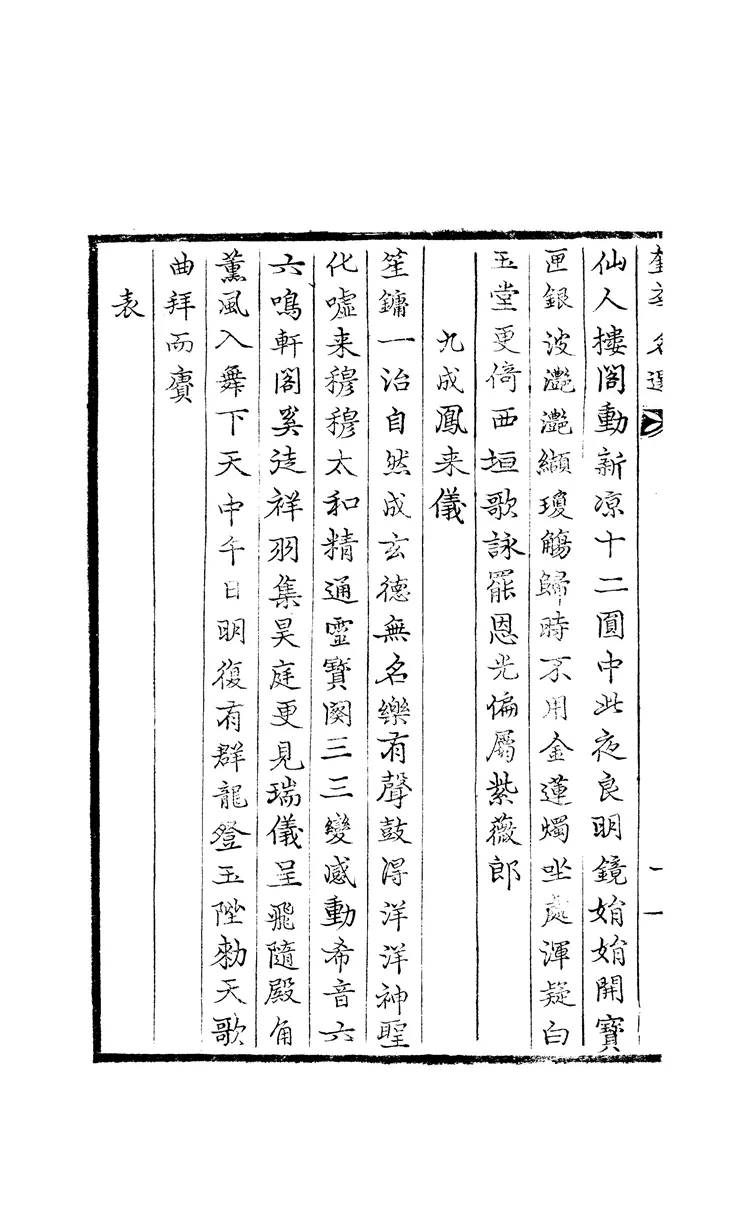 奎章名選
十一
仙人樓閣動新凉十二圓中此夜良明鏡娟娟開寶
匣銀波灔灔纈瓊觴歸時不用金蓮燭坐處渾疑白
玉堂更倚西垣歌詠罷恩光偏屬紫薇郎
九成鳳来儀
笙鏞一治自然成玄德無名樂有聲鼓得洋洋神聖
化嘘来穆穆太和精通靈寶闋三三變感動希音六
六鳴軒閣奚徒祥羽集昊庭更見瑞儀呈飛隨殿角
薰風入舞下天中午日明復有群龍登玉陛勑天歌
曲拜而賡
表